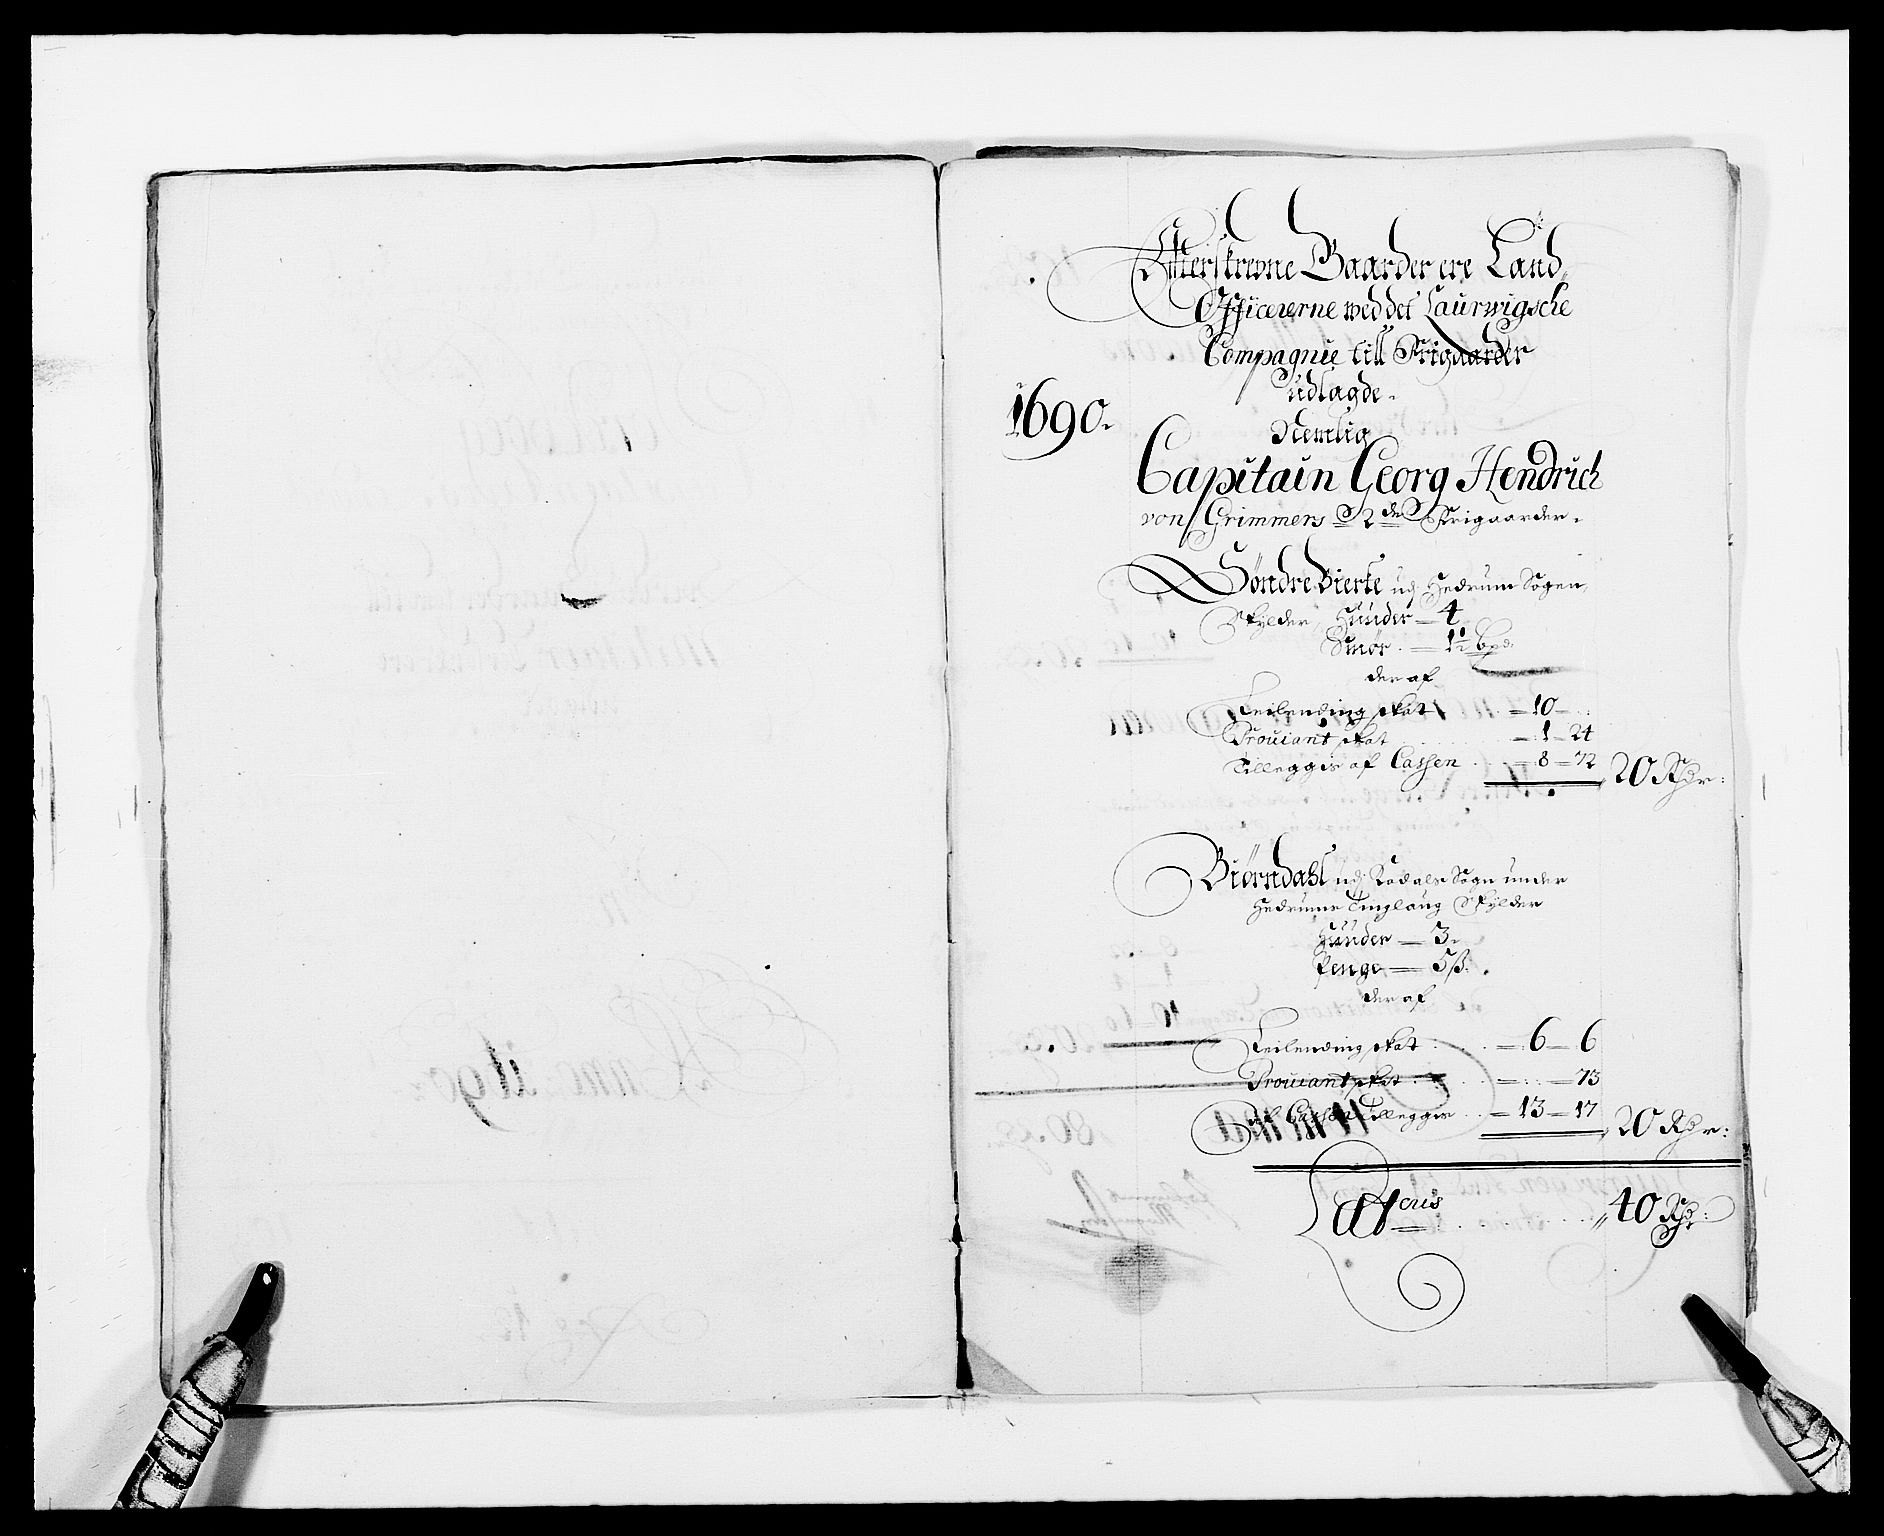 Efterskrevne Gaarder ere Land
Officererne wed det Laurwigsche
Compagnie till Frigaarder
udlagde.
1690.
Nemlig
Capitain Georg Hendrich
von Grimmers 2de Frigaarder.
Søndre Bierke udj Hedrum Sogen,
Skylder, Huuder = 4
Smør = 1½ bpd:
der af
Feilending skat = 10 -
Prouiant skat = 1 - 24
Tilleggis af Cassen = 8 - 72 20 Rdr:
Biørndahl udj Qvdals Sogn under
Hedrums Tinglaug Skylder
Huuder = 3.
Penge = 5 ß.
der af
Feilending skat = 6 - 6
Prouiant skat = - 73
Af Cassen Tillegges = 13 - 17 20 Rdr:
Laterus 40 Rdr